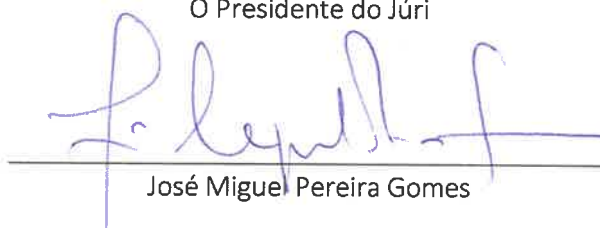 O Presidente do Júri
José Miguel Pereira Gomes